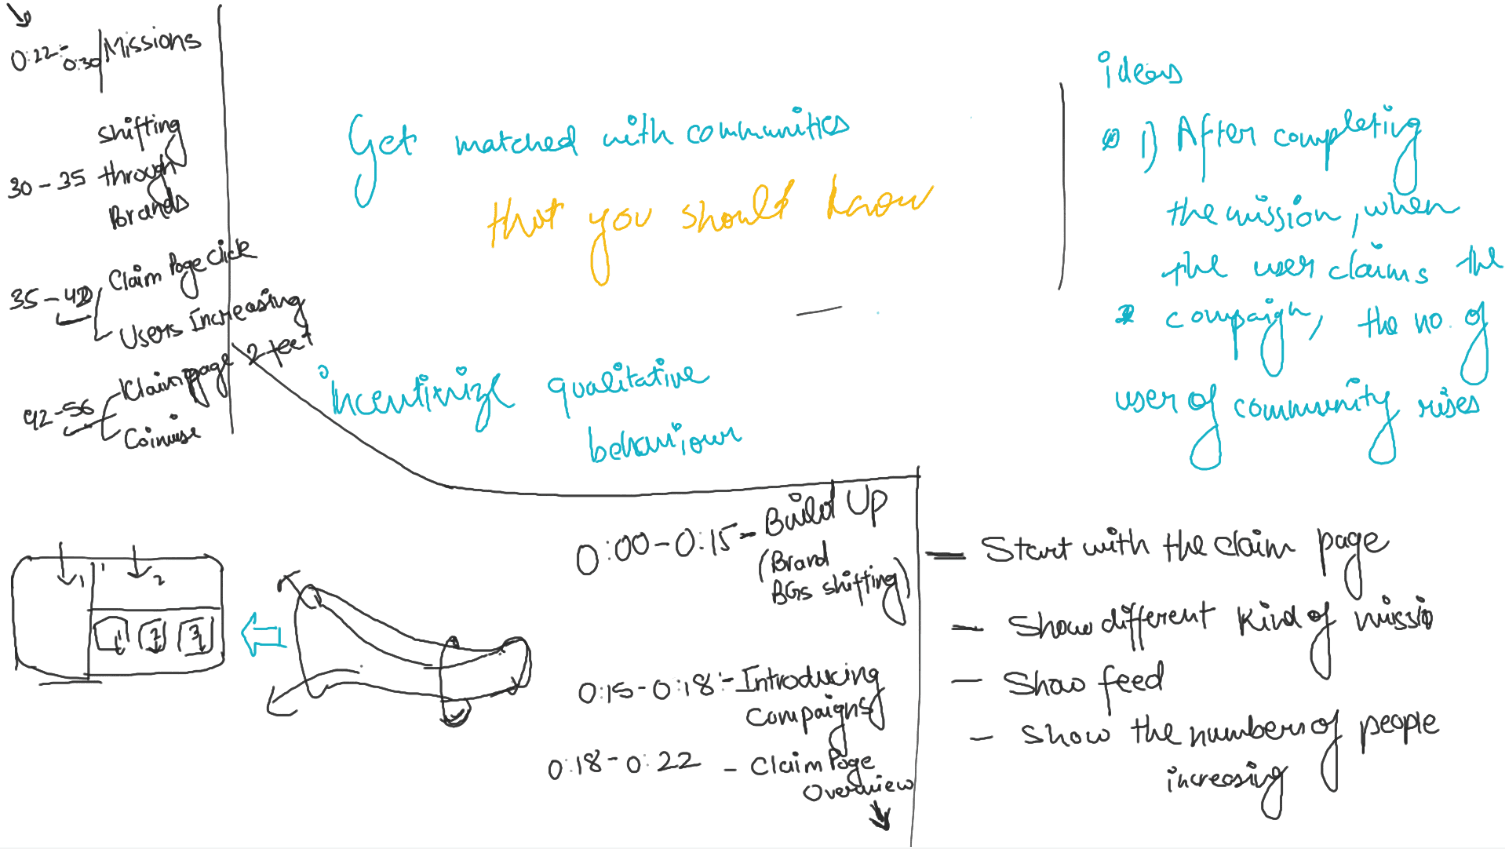 0:22-0:30 Missions
shifting
30-35 through
Brands
Claim Page Click
35-42
Users Increasing
Claim page 2 feet
42-56
Coinwise
Get matched with communities
that you should know
incentivize qualitative
behaviour
ideas
1) After completing
the mission, when
the user claims the
campaign, the no. of
user of community rises
0:00-0:15- Build Up
(Brand
BGs shifting)
0:15-0:18:- Introducing
Campaigns
0:18-0:22 - Claim Page
Overview
- Start with the claim page
- Show different kind of missio
- Show feed
- Show the numbers of people
increasing
1 2
1 2 3